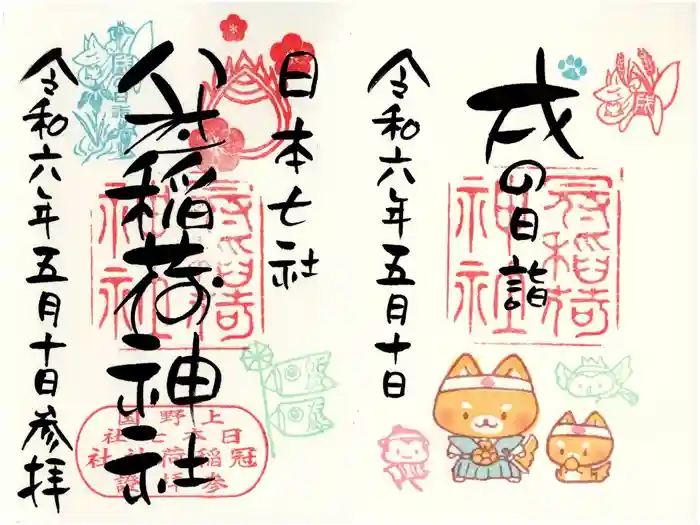 日本七社
冠稲荷神社
令和六年五月十日参拝
冠稲荷
神社
上野国
日本七社
冠稲荷神社
参拝證
戌の日詣
令和六年五月十日
冠稲荷
神社
戌